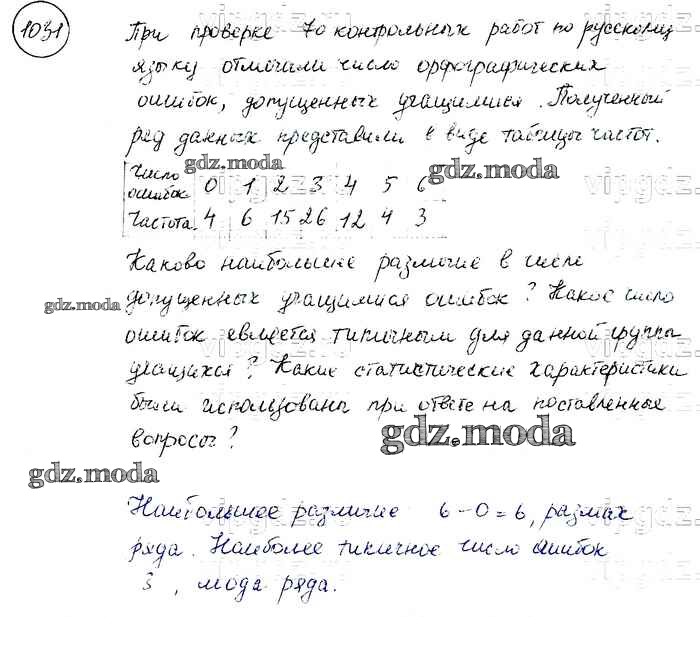 1031
При проверке 70 контрольных работ по русскому
языку отмечали число орфографических
ошибок, допущенных учащимися. Полученный
ряд данных представили в виде таблицы частот.
Число ошибок 0 1 2 3 4 5 6
Частота 4 6 15 26 12 4 3
Каково наибольшее различие в числе
допущенных учащимися ошибок? Какое число
ошибок является типичным для данной группы
учащихся? Какие статистические характеристики
были использованы при ответе на поставленные
вопросы?
Наибольшее различие 6-0=6, размах
ряда. Наиболее типичное число ошибок
3, мода ряда.
gdz.moda
gdz.moda
gdz.moda
gdz.moda
gdz.moda